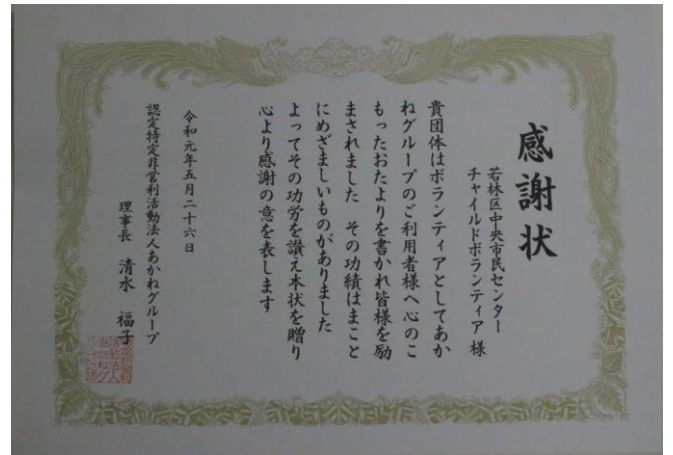 感謝状
若林区中央市民センター
チャイルドボランティア 様
貴団体はボランティアとしてあか
ねグループのご利用者様へ心のこ
もったおたよりを書かれ皆様を励
まされました その功績はまこと
にめざましいものがありました
よってその功労を讃え本状を贈り
心より感謝の意を表します
令和元年五月二十六日
認定特定非営利活動法人あかねグループ
理事長 清水 福子